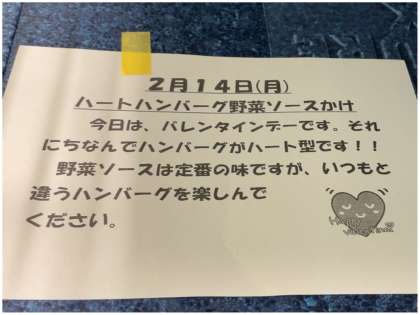 2月14日(月)
ハートハンバーグ野菜ソースかけ
今日は、バレンタインデーです。それ
にちなんでハンバーグがハート型です！！
野菜ソースは定番の味ですが、いつもと
違うハンバーグを楽しんで
ください。